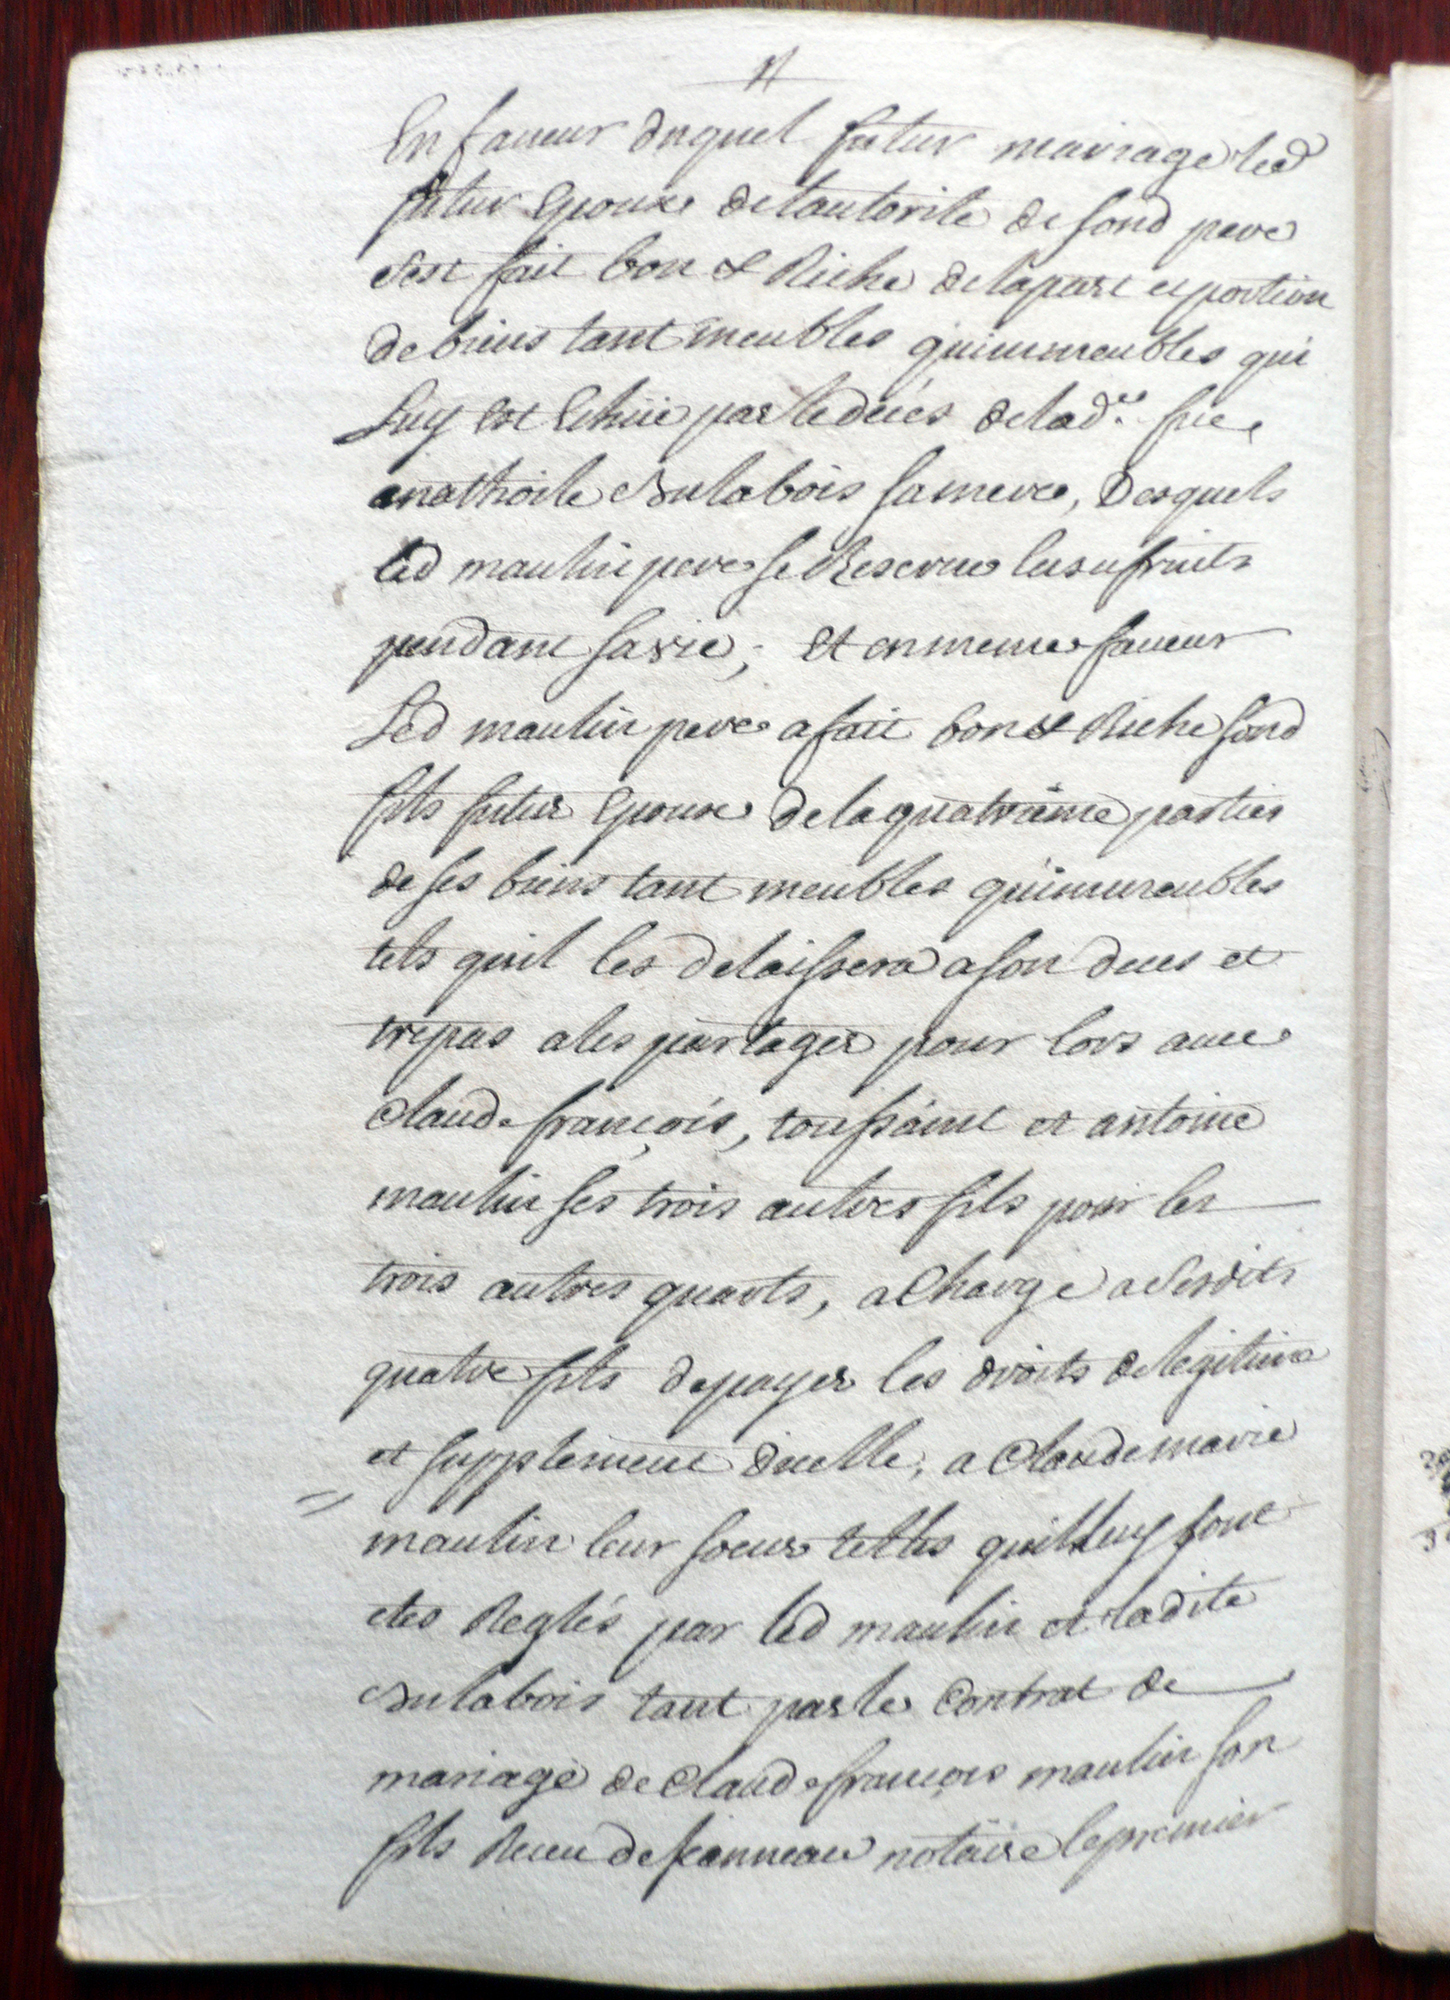 En faveur duquel futur mariage led
futur Epoux delautorité de sond pere
sest fait bon & Riche delapart et portion
debiens tant meubles quimmeubles qui
Luy est Echüe par ledécés delad.e fue
anathoile Bulabois samere, Desquels
led maulin pere se Reserve lusufruits
pendant savie; Et en meme faveur
Led maulin pere afait bon & Riche sond
fils futur Epoux delaquatrième parties
de ses biens tant meubles quimmeubles
tels quil les delaissera ason deces et
trepas ales partager pour lors avec
Claude françois, toussaint et antoine
maulin ses trois autres fils pour les
trois autres quarts, acharge asesdits
quatre fils depayer les droits delegitime
et supplement dicelle, a Claudemarie
maulin leur soeur telles quilluy sont
etes Reglés par led maulin et ladite
Bulabois tant parle Contrat de
mariage de Claude françois maulin son
fils Receu de Jeanneau notaire lepremier